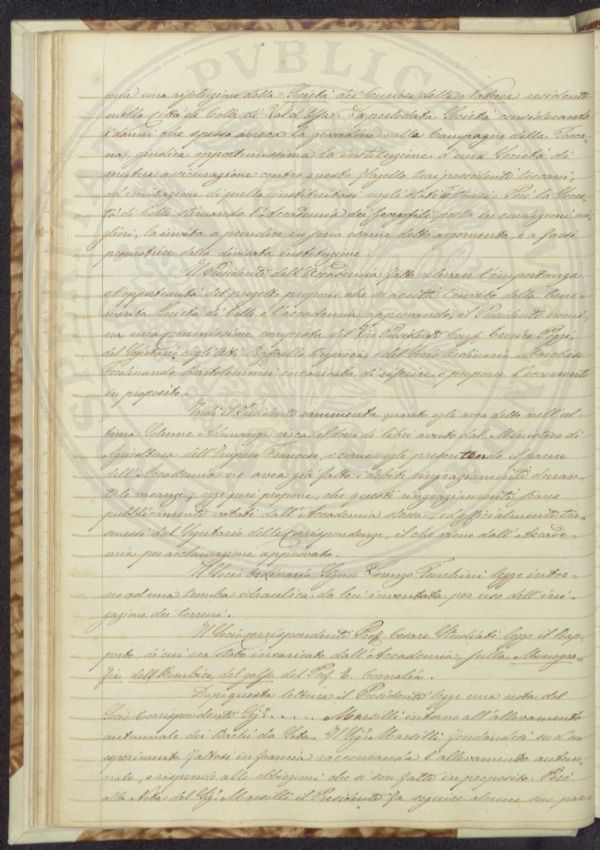 una risoluzione della Società dei Curiosi della Natura residenti
nella Città di Colle di Val d'Elsa. La prelodata Società considerando
i danni che spesso arreca la grandine nelle Campagne della Tosca-
na, giudica opportunissima la instituzione d'una Società di
mutua assicurazione contro questo flagello tra i possidenti toscani,
ad imitazione di quella instituitasi negli Stati Perciò la Socie-
tà di Colle stimando l'Accademia dei Georgofili posta in condizioni mi-
gliori, la invita a prendere in serio esame detto argomento, e a farsi
promotrice della divisata instituzione.
Il Presidente dell'Accademia fatto rilevare l'importanza
e l'opportunità del progetto propone che si accetti l'invito della
Società di Colle e l'Accademia approvando, il Presidente nomi-
na una commissione composta del Vice Presidente Cav. Enrico Poggi,
del Segretario degli Atti Raffaello Busacca, e del Socio Ordinario
Ferdinando Bartolommei incaricata di riferire e proporre l'occorrente
in proposito.
Indi il Presidente rammenta quanto egli avea detto nell'ul-
tima Solenne Adunanza circa il dono di libri avuto dal Ministero di
Agricoltura dell'Impero Francese, e come egli presentendo il parere
dell'Accademia ne avea già fatto i debiti ringraziamenti duran-
te le vacanze; oggi pure propone, che questi ringraziamenti siano
pubblicamente votati dall'Accademia stessa, ed officialmente tra-
smessi dal Segretario delle Corrispondenze, il che viene dall'Accade-
mia per acclamazione approvato.
Il Socio Ordinario Signor Lorenzo Turchini legge intor-
no ad una tromba idraulica da lui inventata per uso dell'irri-
gazione dei terreni.
Il Socio corrispondente Prof. Cesare Studiati legge il Rap-
porto di cui era stato incaricato dall'Accademia sulla Monogra-
fia dell Bombice del gelso del Prof. E. Cornalia.
Dopo questa lettura il Presidente legge una nota del
Socio Corrispondente Sigr. . . . . . Marsilli intorno all'allevamento
autunnale dei Bachi da Seta. Il Sigr. Marsilli fondandosi su d'un
esperimento fattosi in Francia raccomanda l'allevamento autun-
nale, e risponde alle obbiezioni che si son fatte in proposito. Poi
alla Nota del Sigr. Marsilli il Presidente fa seguire alcune sue